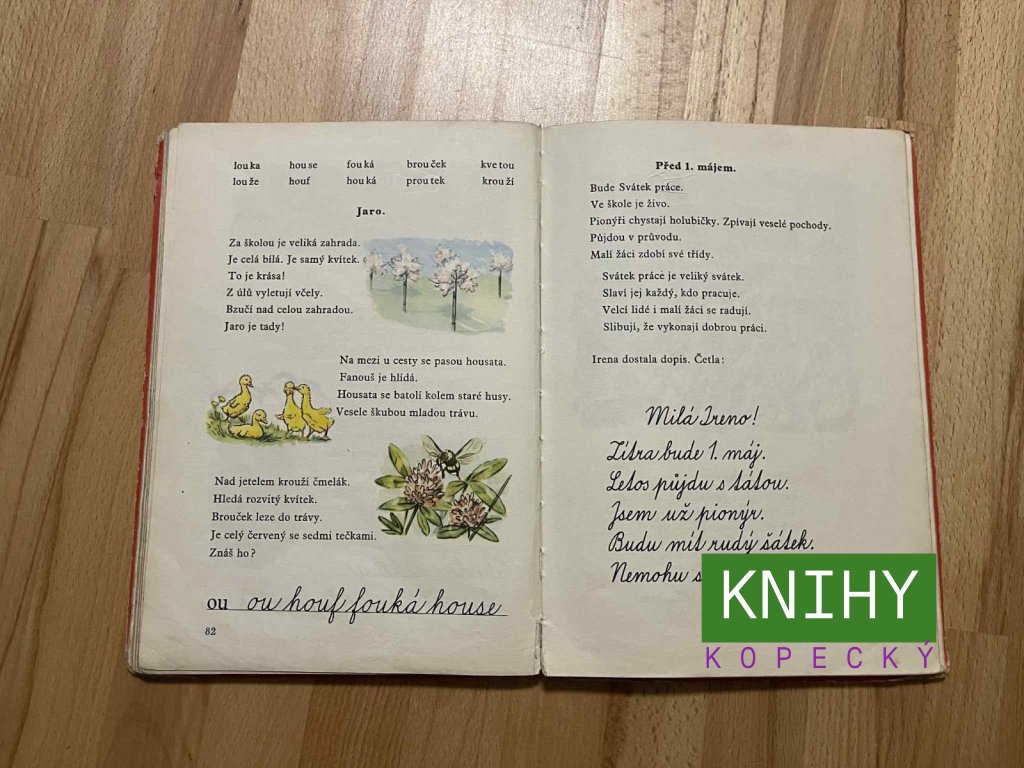 lou ka hou se fou ká brou ček kve tou
lou že houf hou ká prou tek krou ží
Jaro.
Za školou je veliká zahrada.
Je celá bílá. Je samý kvítek.
To je krása!
Z úlů vyletují včely.
Bzučí nad celou zahradou.
Jaro je tady!
Na mezi u cesty se pasou housata.
Fanouš je hlídá.
Housata se batolí kolem staré husy.
Vesele škubou mladou trávu.
Nad jetelem krouží čmelák.
Hledá rozvitý kvítek.
Brouček leze do trávy.
Je celý červený se sedmi tečkami.
Znáš ho?
ou ou houf fouká house
82
Před 1. májem.
Bude Svátek práce.
Ve škole je živo.
Pionýři chystají holubičky. Zpívají veselé pochody.
Půjdou v průvodu.
Malí žáci zdobí své třídy.
Svátek práce je veliký svátek.
Slaví jej každý, kdo pracuje.
Velcí lidé i malí žáci se radují.
Slibují, že vykonají dobrou práci.
Irena dostala dopis. Četla:
Milá Ireno!
Zítra bude 1. máj.
Letos půjdu s tátou.
Jsem už pionýr.
Budu mít rudý šátek.
Nemohu
KNIHY
KOPECKÝ